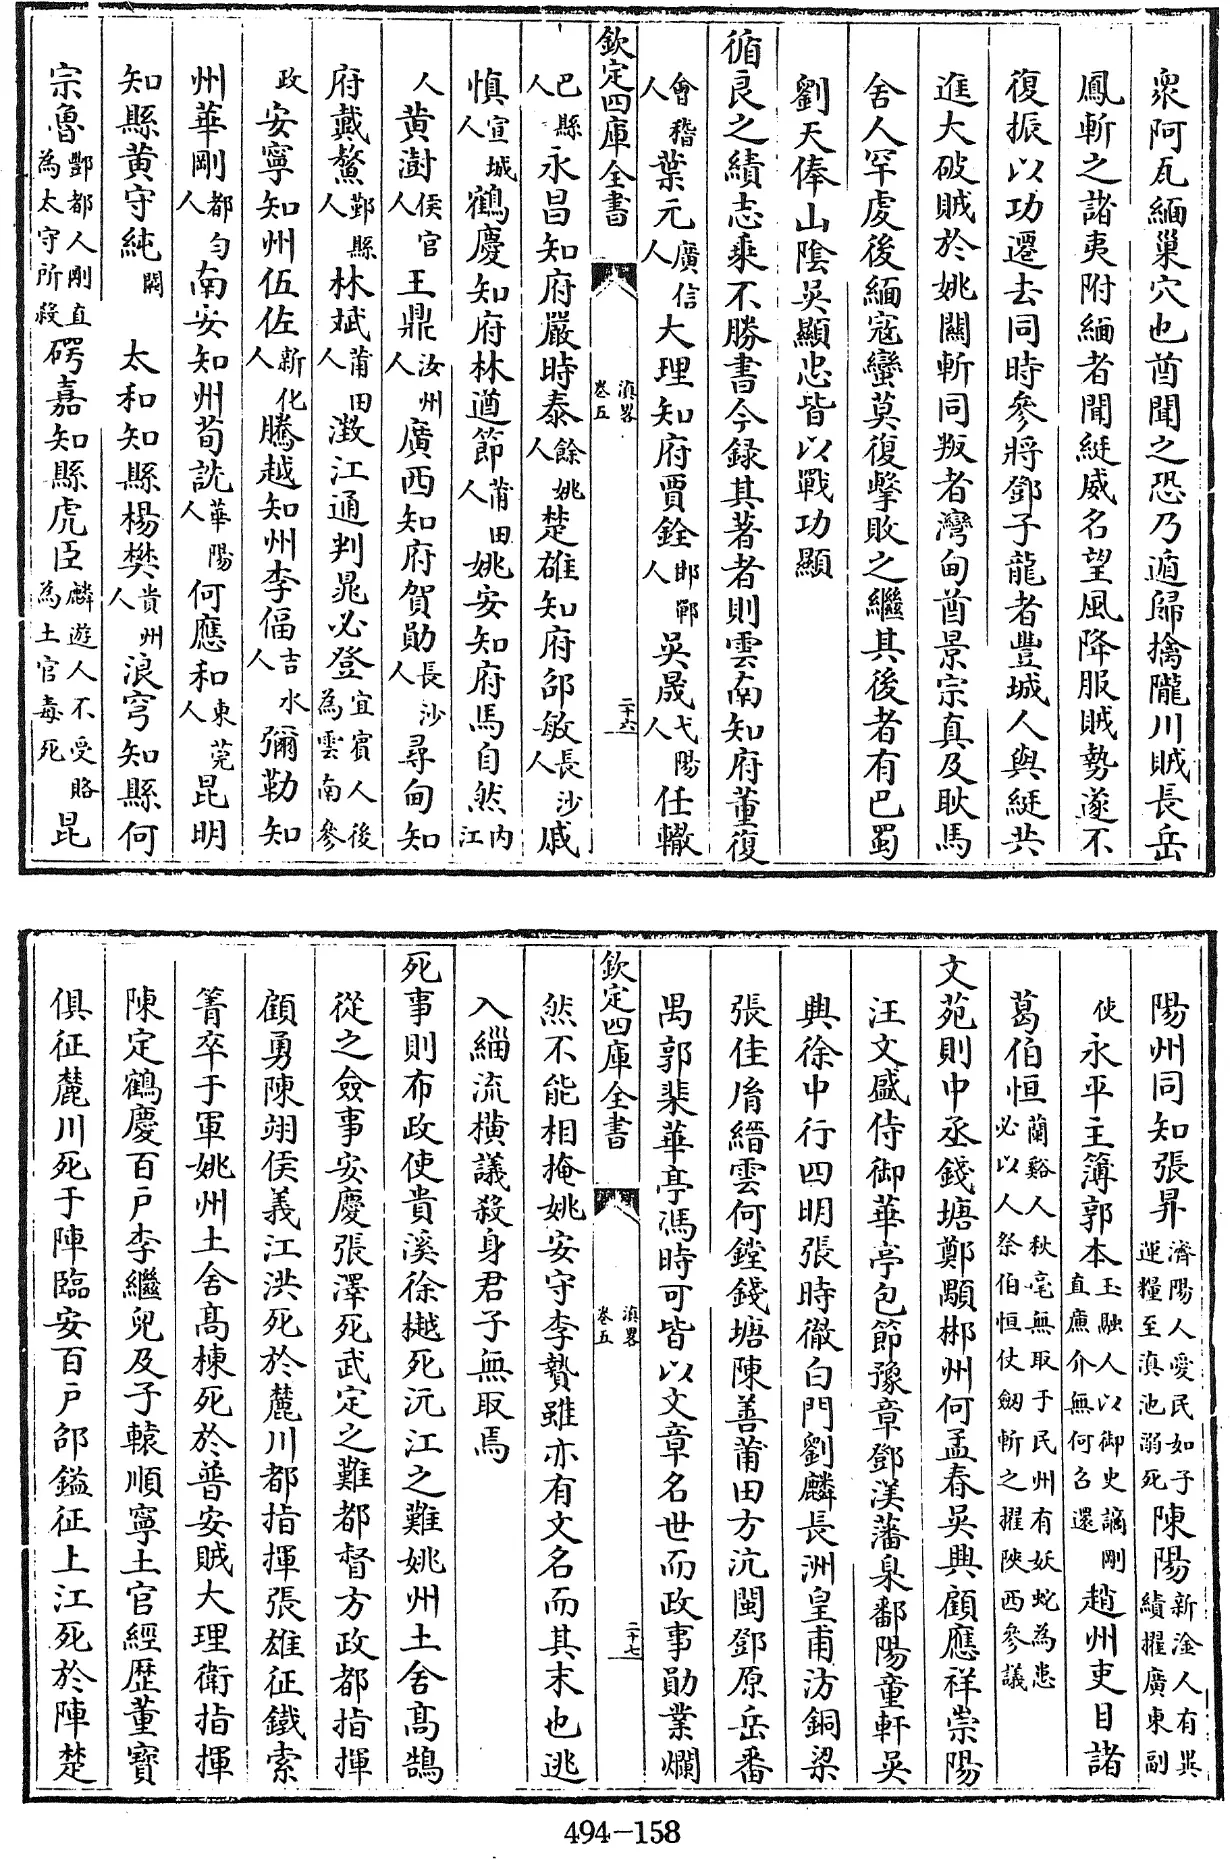 衆阿瓦緬巢穴也酋聞之恐乃遁歸擒隴川賊長岳
鳳斬之諸夷附緬者聞綎威名望風降服賊勢遂不
復振以功遷去同時參將鄧子龍者豐城人與綎共
進大破賊於姚關斬同叛者灣甸酋景宗真及耿馬
舍人罕虔後緬寇蠻莫復擊敗之繼其後者有巴蜀
劉天俸山陰吳顯忠皆以戰功顯
循良之績志乘不勝書今録其著者則雲南知府董復
會稽人葉元廣信人大理知府賈銓邯鄲人吳晟弋陽人任轍
欽定四庫全書 滇畧 卷五 二十六
巴縣人永昌知府嚴時泰餘姚人楚雄知府邵敏長沙人戚
慎宣城人鶴慶知府林遒節莆田人姚安知府馬自然内江
人黄澍侯官人王鼎汝州人廣西知府賀勛長沙人尋甸知
府戴鰲鄞縣人林斌莆田人澂江通判晁必登宜賓人後為雲南參
政安寧知州伍佐新化人騰越知州李偪吉水人彌勒知
州華剛都勻人南安知州荀詵華陽人何應和東莞人昆明
知縣黄守純闕 太和知縣楊樊貴州人浪穹知縣何
宗魯酆都人剛直為太守所殺㟧嘉知縣虎臣麟遊人不受賂為土官毒死昆
陽州同知張昇濟陽人愛民如子運糧至滇池溺死陳陽新淦人有異績擢廣東副
使永平主簿郭本玉融人以御史謫剛直亷介無何召還趙州吏目諸
葛伯恒蘭谿人秋毫無取于民州有妖蛇為患必以人祭伯恒仗劒斬之擢陜西參議
文苑則中丞錢塘鄭顒郴州何孟春吳興顧應祥崇陽
汪文盛侍御華亭包節豫章鄧渼藩臬鄱陽童軒吳
興徐中行四明張時徹白門劉麟長洲皇甫汸銅梁
張佳胤縉雲何鏜錢塘陳善莆田方沆閩鄧原岳番
禺郭棐華亭馮時可皆以文章名世而政事勛業爛
欽定四庫全書 滇畧 卷五 二十七
然不能相掩姚安守李贄雖亦有文名而其末也逃
入緇流橫議殺身君子無取焉
死事則布政使貴溪徐樾死沅江之難姚州土舍高鵠
從之僉事安慶張澤死武定之難都督方政都指揮
顧勇陳翊侯義江洪死於麓川都指揮張雄征鐵索
箐卒于軍姚州土舍高棟死於普安賊大理衛指揮
陳定鶴慶百戶李繼兒及子轅順寧土官經歴董寶
俱征麓川死于陣臨安百戶邵鎰征上江死於陣楚
494-158